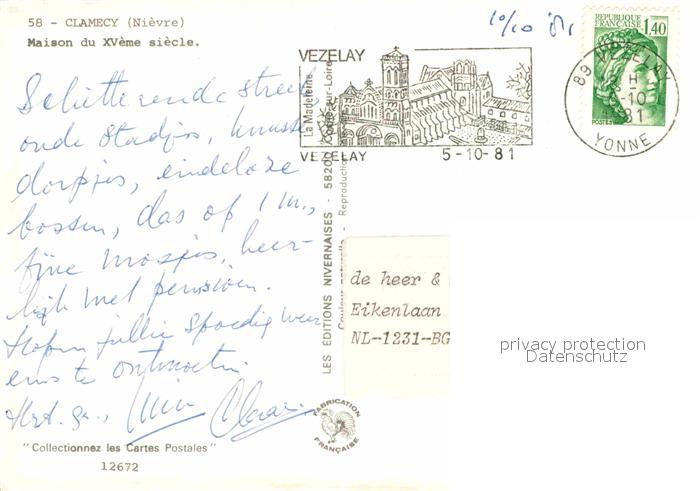 58 - CLAMECY (Nièvre)
Maison du XVème siècle.
10/10 '81
VEZELAY
La Madeleine
VEZELAY
5-10-81
REPUBLIQUE
FRANCAISE
1,40
POSTES
89 VEZELAY
H
5-10
81
YONNE
Schitterende streek,
oude stadjes, knusse
dorpjes, eindeloze
bossen, das op 1 m.,
fijne hosjes, heer-
lijk met pension.
Hopen jullie spoedig weer
eens te ontmoeten.
Hrt. gr.,
LES EDITIONS NIVERNAISES - 58200 Cosne-sur-Loire
Couleurs naturelles - Reproduction
de heer &
Eikenlaan
NL-1231--BG
privacy protection
Datenschutz
FABRICATION
FRANÇAISE
"Collectionnez les Cartes Postales"
12672